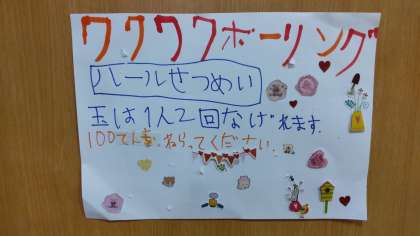 ワクワクボーリング
ルールせつめい
玉は1人2回なげれます.
100てんをねらってください.